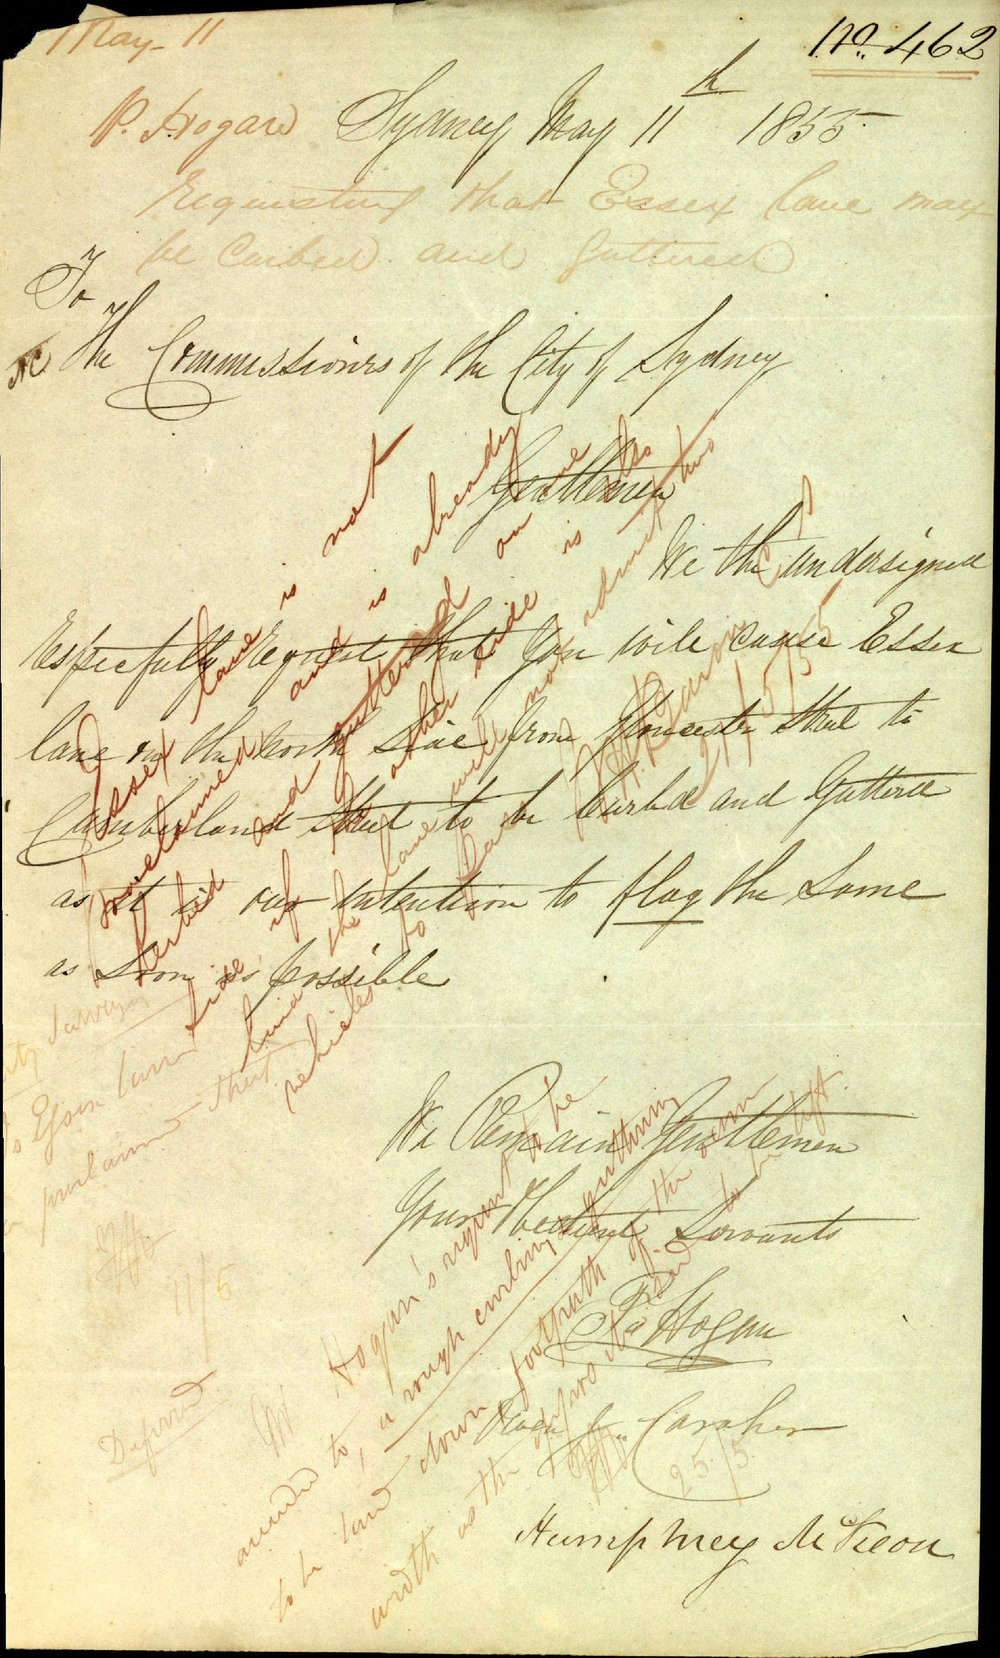 May 11
No. 462
P. Hogan
Sydney May 11th 1855
requesting that Essex lane may
be Curbed and Guttered
To
The Commissioners of the City of Sydney
Gentlemen
We the undersigned
Respecfully Request that you will cause Essex
lane on the North Side from Gloucester Street to
Cumberland Street to be Curbed and Guttered
as it is our intention to flag the Same
as Soon as possible
We Remain Gentlemen
Your Obedient Servants
Pat Hogan
Owen Jn Caraher
Humphrey McKeon
Essex lane is not
proclaimed, and is already
kerbed and guttered on one
side if the other side is so
laid the lane will not admit two
vehicles to pass
21/5/55
City Surveyor
Is Essex lane
a proclaimed Street
11/5
Deferred
Mr Hogan's request to be
acceded to, a rough curbing & guttering
to be laid down footpath of the same
width as the opposite side to be left
25/5